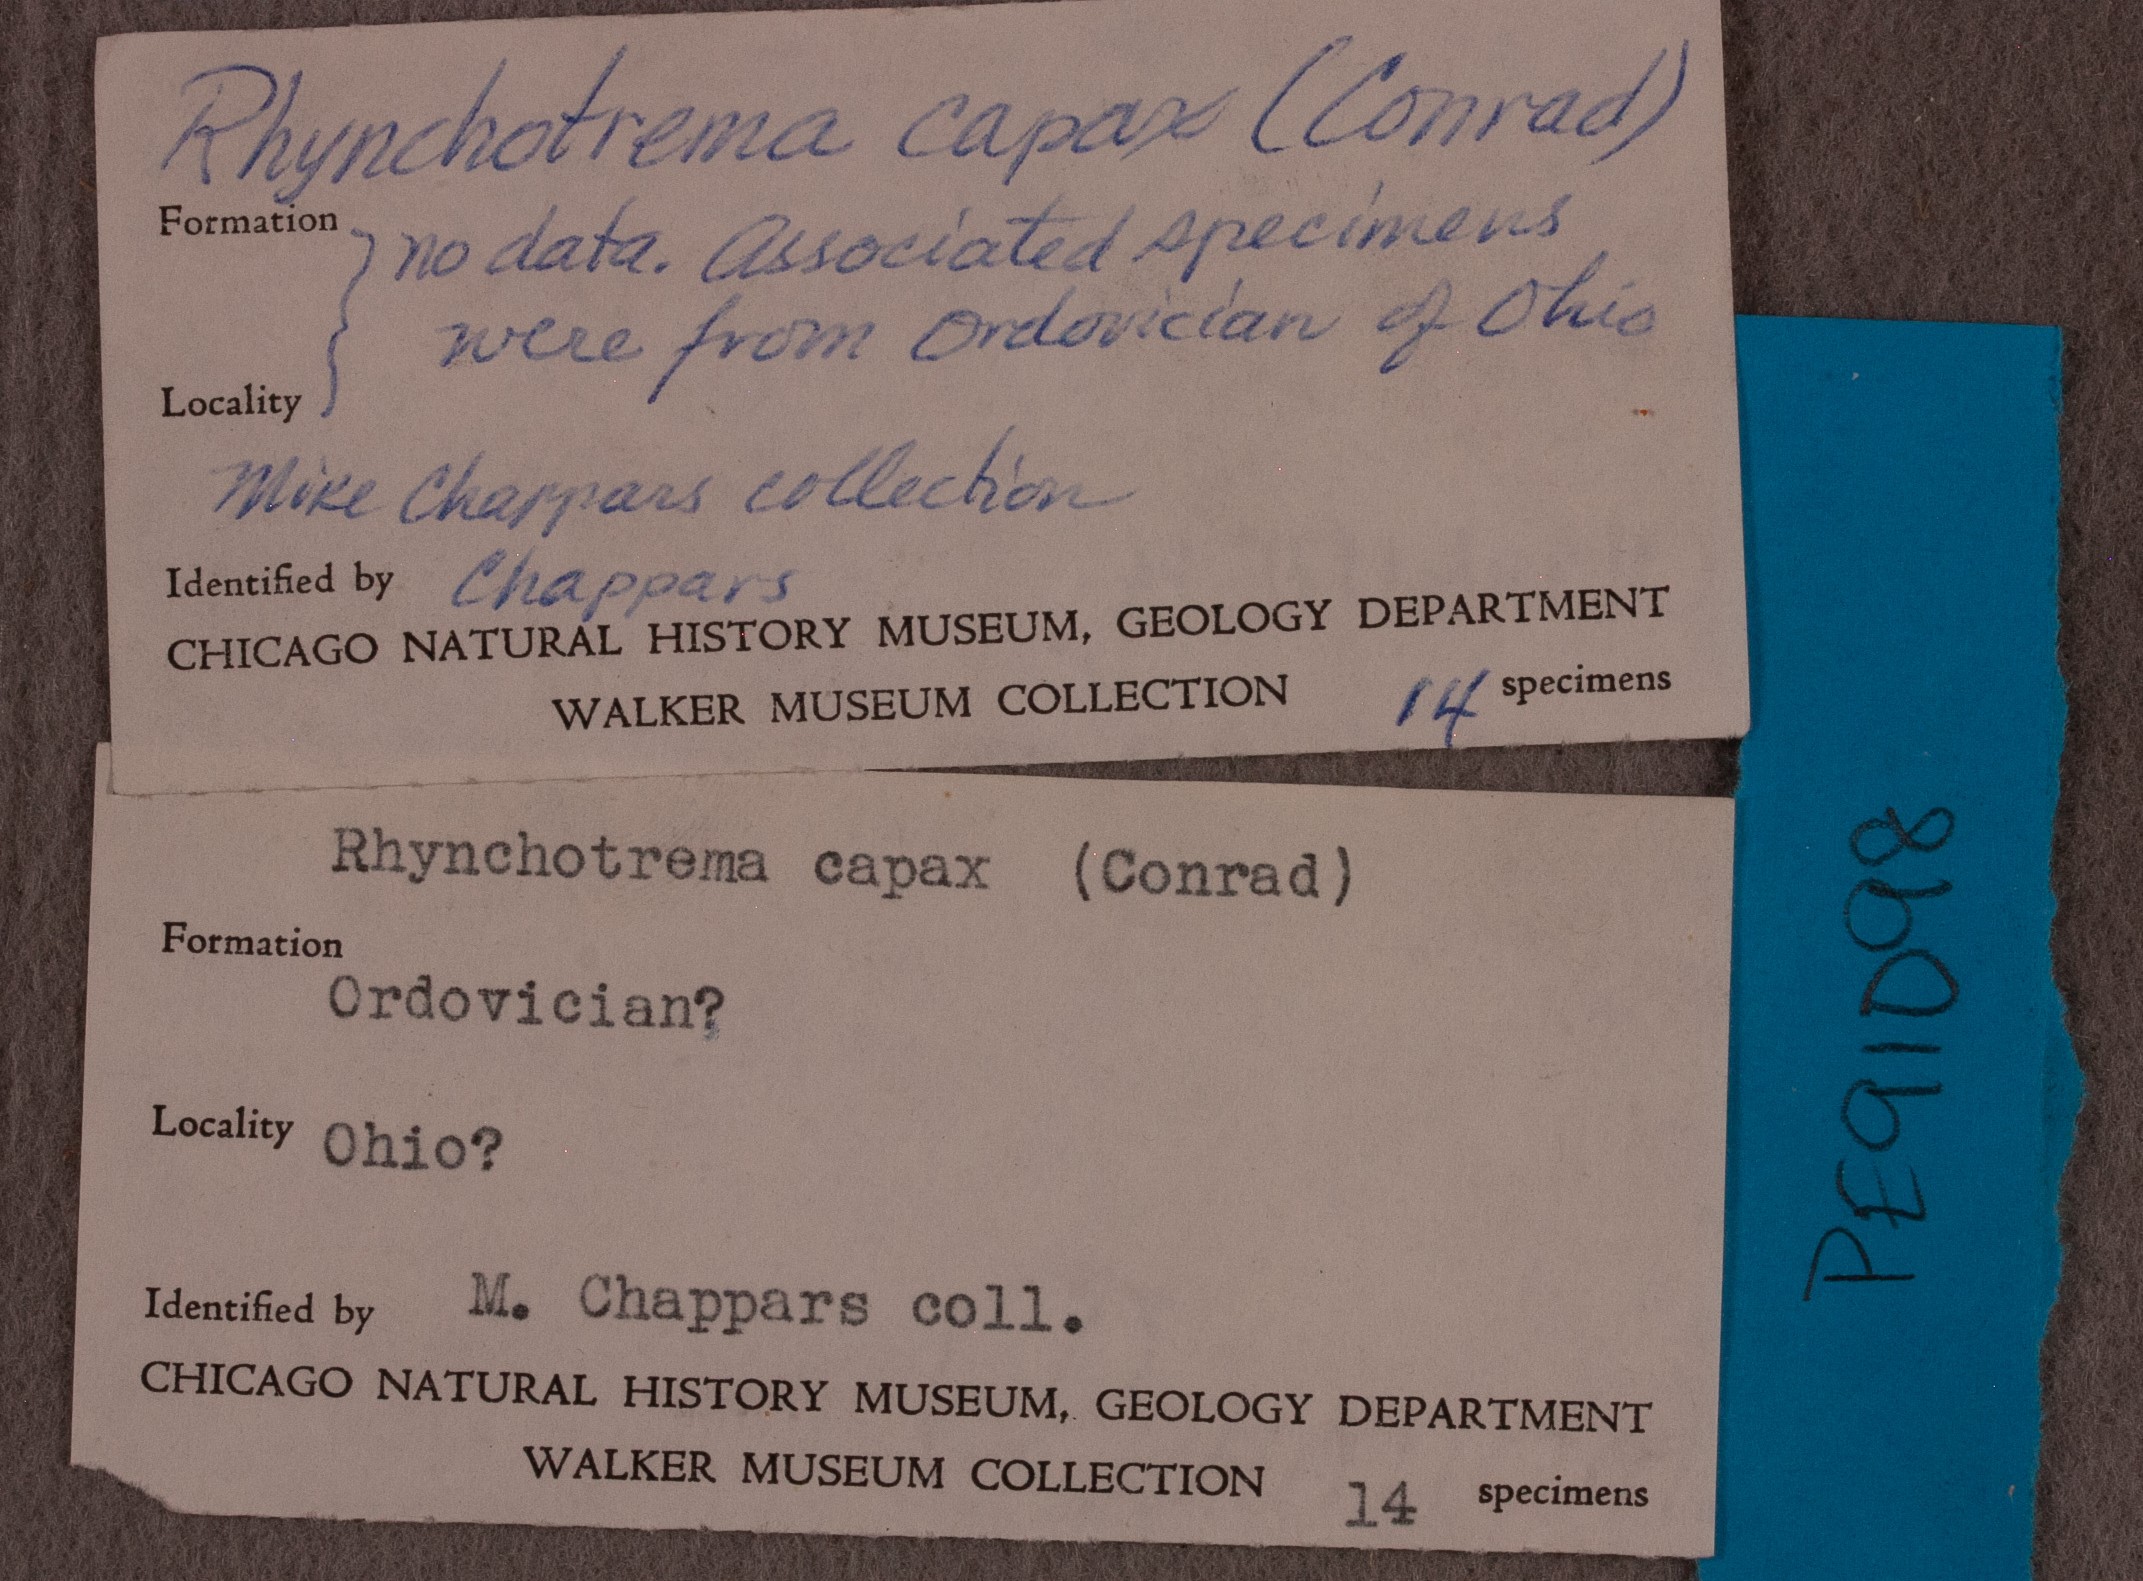 Rhynchotrema capax (Conrad)
Formation
no data. Associated specimens
were from Ordovician of Ohio
Locality
Mike Chappars collection
Identified by Chappars
CHICAGO NATURAL HISTORY MUSEUM, GEOLOGY DEPARTMENT
WALKER MUSEUM COLLECTION 14 specimens
Rhynchotrema capax (Conrad)
Formation
Ordovician?
Locality Ohio?
Identified by M. Chappars coll.
CHICAGO NATURAL HISTORY MUSEUM, GEOLOGY DEPARTMENT
WALKER MUSEUM COLLECTION 14 specimens
PE91098